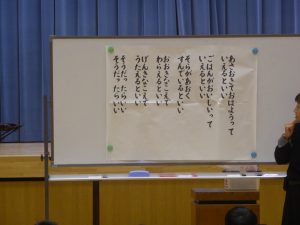 あさおきておはようって
いえるといい
ごはんがおいしいって
いえるといい
そらがあおく
すんでいるといい
おおきなこえで
わらえるといい
げんきなこえで
うたえるといい
そうだったらいい
そうだったらいい